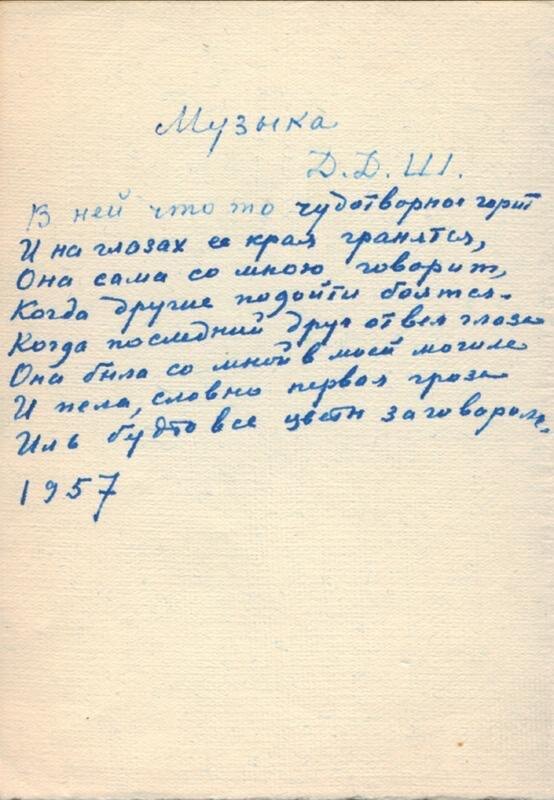 Музыка
Д. Д. Ш.
В ней что то чудотворное горит
И на глазах ее края гранятся,
Она сама со мною говорит,
Когда другие подойти боятся.
Когда последний друг отвел глаза
Она была со мной в моей могиле
И пела, словно первая гроза
Иль будто все цветы заговорили.
1957